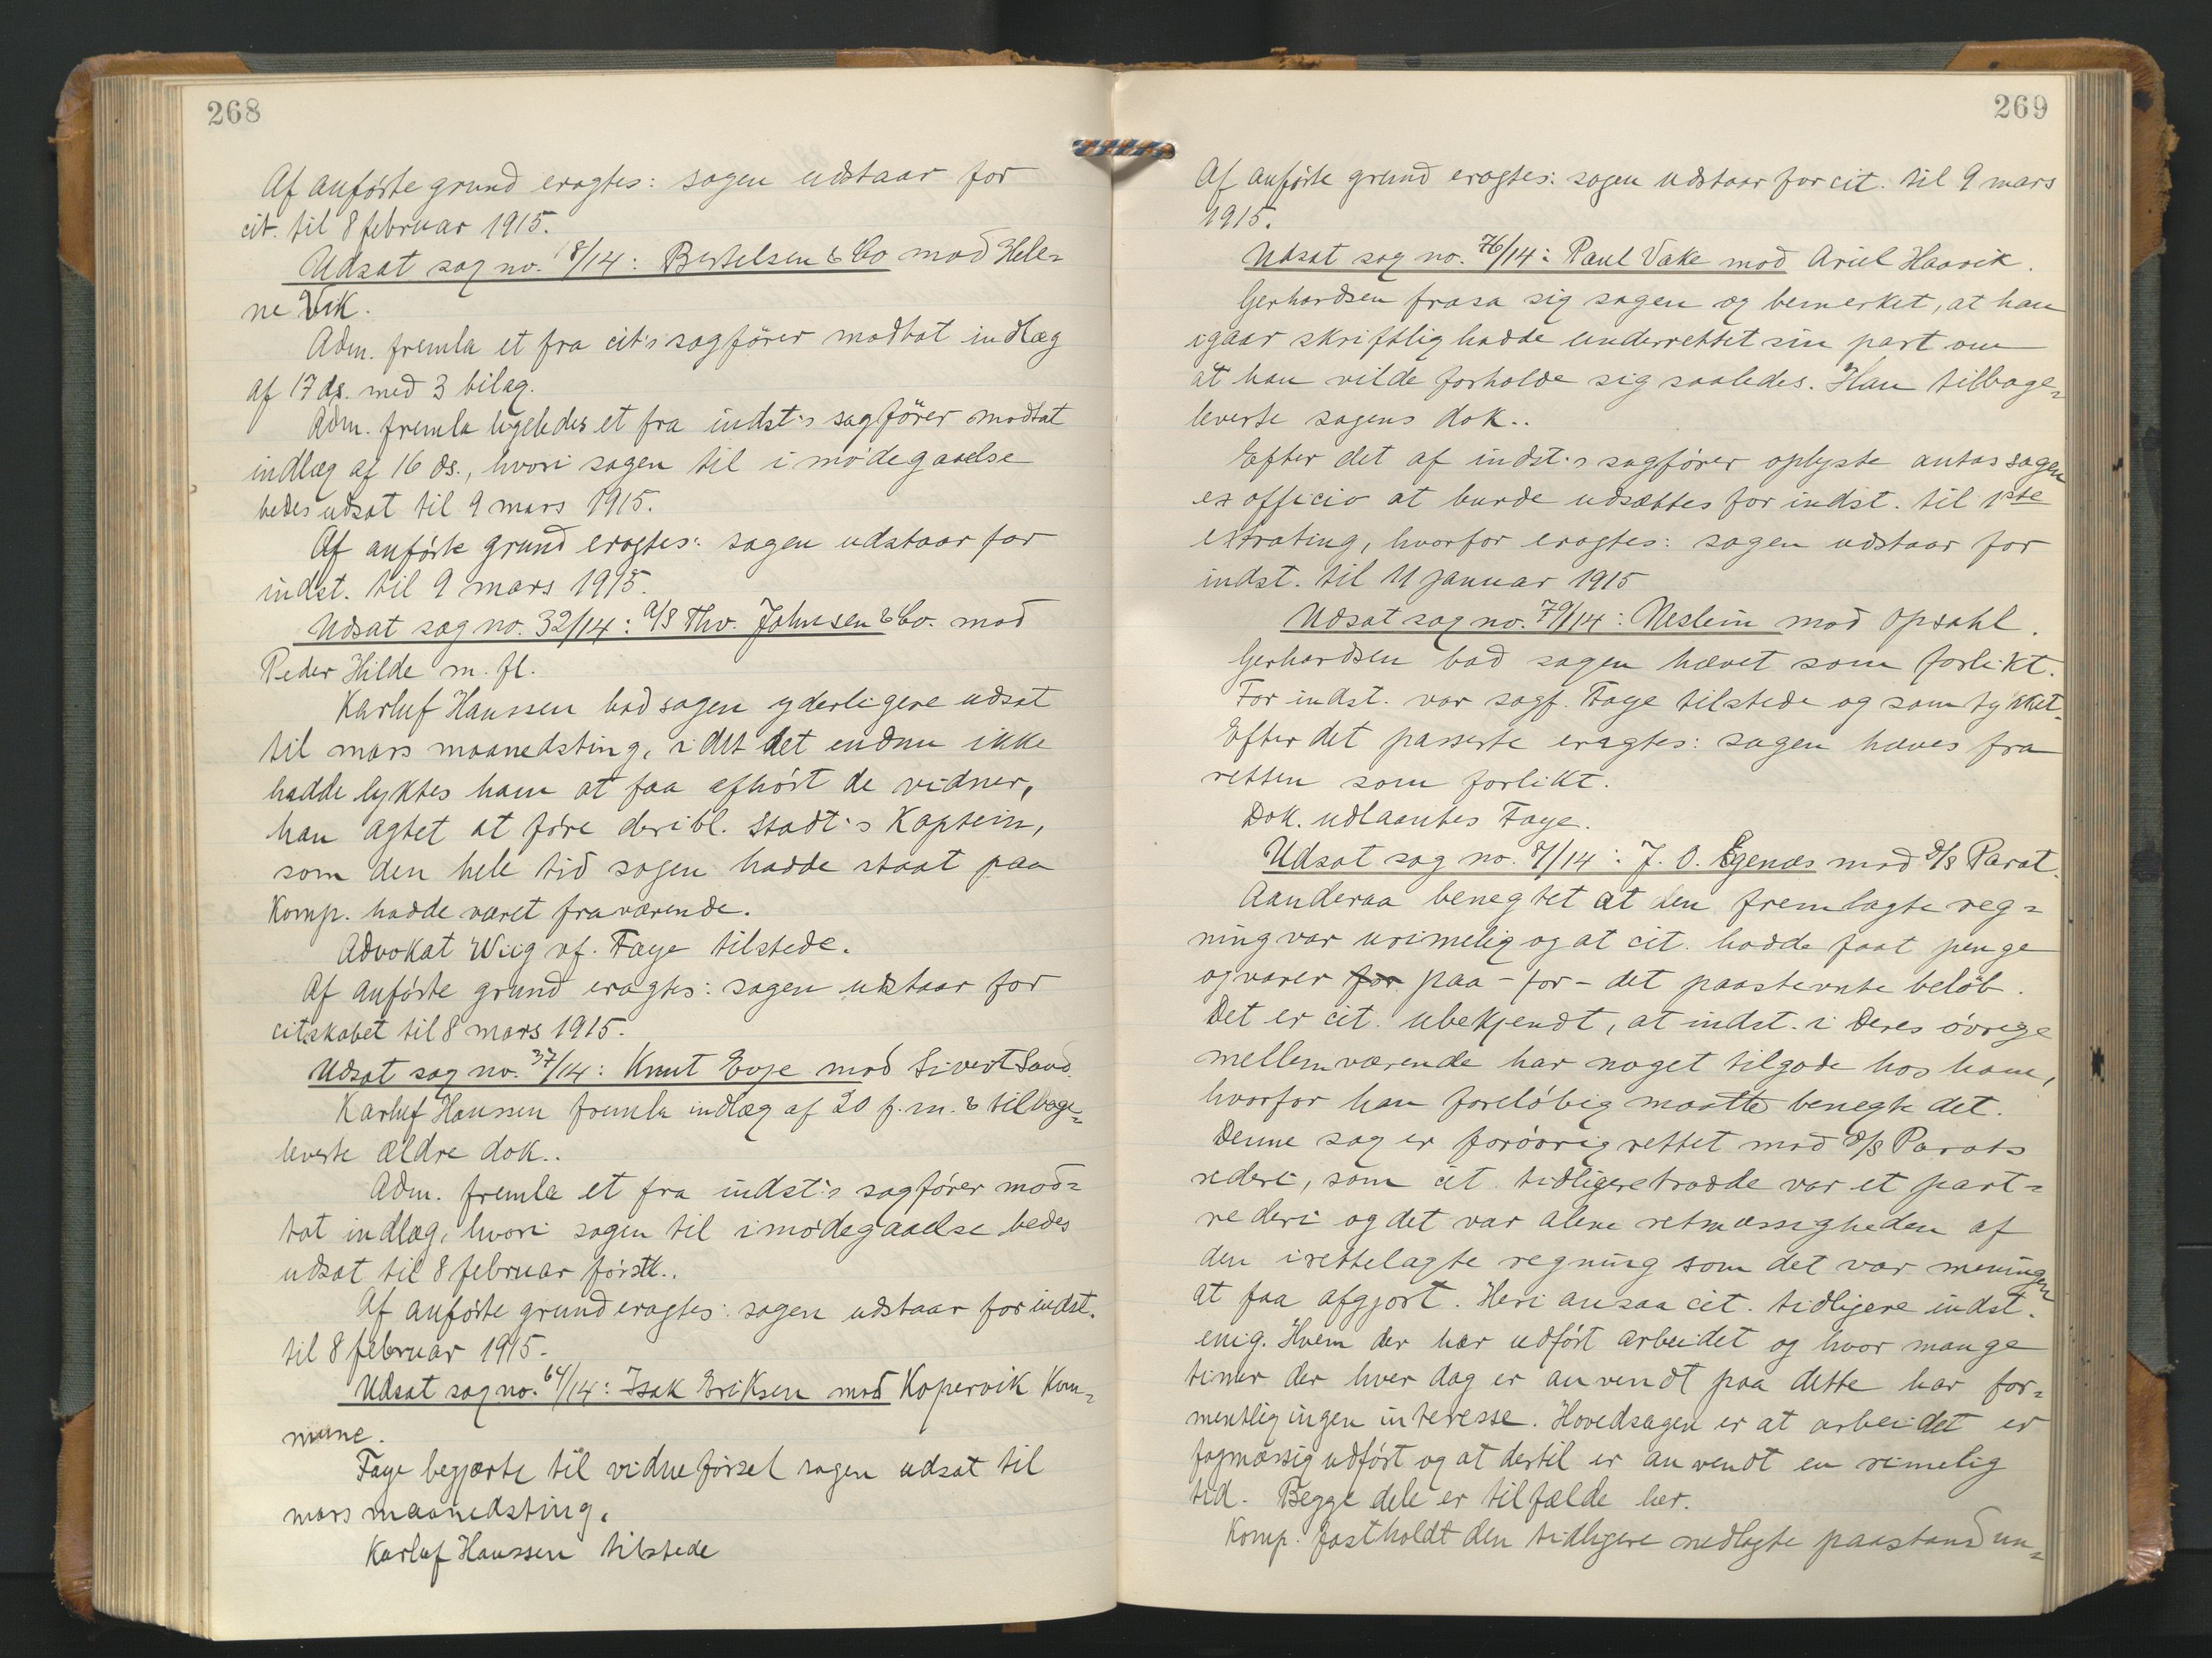 268
Af anførte grund eragtes: sagen udstaar for
cit. til 8 februar 1915.
Udsat sag no. 18/14: Bertelsen & Co mod Hele=
ne Vik.
Adm. fremla et fra cit's sagfører modtat indlæg
af 17 ds. med 3 bilag.
Adm. fremla ligeledes et fra indst:s sagfører modtat
indlæg af 16 ds., hvori sagen til imødegaaelse
bedes udsat til 9 mars 1915.
Af anførte grund eragtes: sagen udstaar for
indst. til 9 mars 1915.
Udsat sag no. 32/14: A/S Thv. Johnsen & Co. mod
Peder Hilde m. fl.
Karluf Hanssen bad sagen yderligere udsat
til mars maanedsting, idet det endnu ikke
hadde lyktes ham at faa afhørt de vidner,
han agtet at føre deribl. Stadt:s Kaptein,
som den hele tid sagen hadde staat paa
Komp. hadde været fraværende.
Advokat Wiig vf. Faye tilstede.
Af anførte grund eragtes: sagen udstaar for
citskabet til 8 mars 1915.
Udsat sag no. 37/14: Knut Evje mod Sivert Sand.
Karluf Hanssen fremla indlæg af 20 f.m. & tilbage=
leverte ældre dok..
Adm. fremla et fra indst:s sagfører mod=
tat indlæg, hvori sagen til imødegaaelse bedes
udsat til 8 februar førstk..
Af anførte grund eragtes: sagen udstaar for indst.
til 8 februar 1915.
Udsat sag no. 64/14: Isak Eriksen mod Kopervik Kom=
mune.
Faye begjærte til vidneførsel sagen udsat til
mars maanedsting.
Karluf Hanssen tilstede
269
Af anførte grund eragtes: sagen udstaar for cit. til 9 mars
1915.
Udsat sag no. 76/14: Paul Vake mod Ariel Haavik.
Gerhardsen frasa sig sagen og bemerket, at han
igaar skriftlig hadde underrettet sin part om
at han vilde forholde sig saaledes. Han tilbage=
leverte sagens dok..
Efter det af indst:s sagfører oplyste antas sagen
ex officio at burde udsættes for indst. til 1ste
extrating, hvorfor eragtes: sagen udstaar for
indst. til 11 januar 1915
Udsat sag no. 79/14: Neslein mod Opsahl.
Gerhardsen bad sagen hævet som forlikt.
For indst. var sagf. Faye tilstede og samtykket.
Efter det passerte eragtes: sagen hæves fra
retten som forlikt.
Dok. udlaantes Faye.
Udsat sag no. 8/14: J. O. Egenæs mod D/S Parat.
Aanderaa benegtet at den fremlagte reg=
ning var urimelig og at cit. hadde faat penge
og varer for paa - for - det paastevnte beløb.
Det er cit. ubekjendt, at indst. i Deres øvrige
mellemværende har noget tilgode hos ham,
hvorfor han foreløbig maatte benegte det.
Denne sag er forøvrig rettet mod D/S Parats
rederi, som cit tidligere trodde var et part=
rederi og det var alene retmæssigheden af
den irettelagte regning som det var meningen
at faa afgjort. Heri ansaa cit. tidligere indst.
enig. Hvem der har udført arbeidet og hvor mange
timer der hver dag er anvendt paa dette har for=
mentlig ingen interesse. Hovedsagen er at arbeidet er
fagmæssig udført og at dertil er anvendt en rimelig
tid. Begge dele er tilfælde her.
Komp. fastholdt den tidligere nedlagte paastand un=